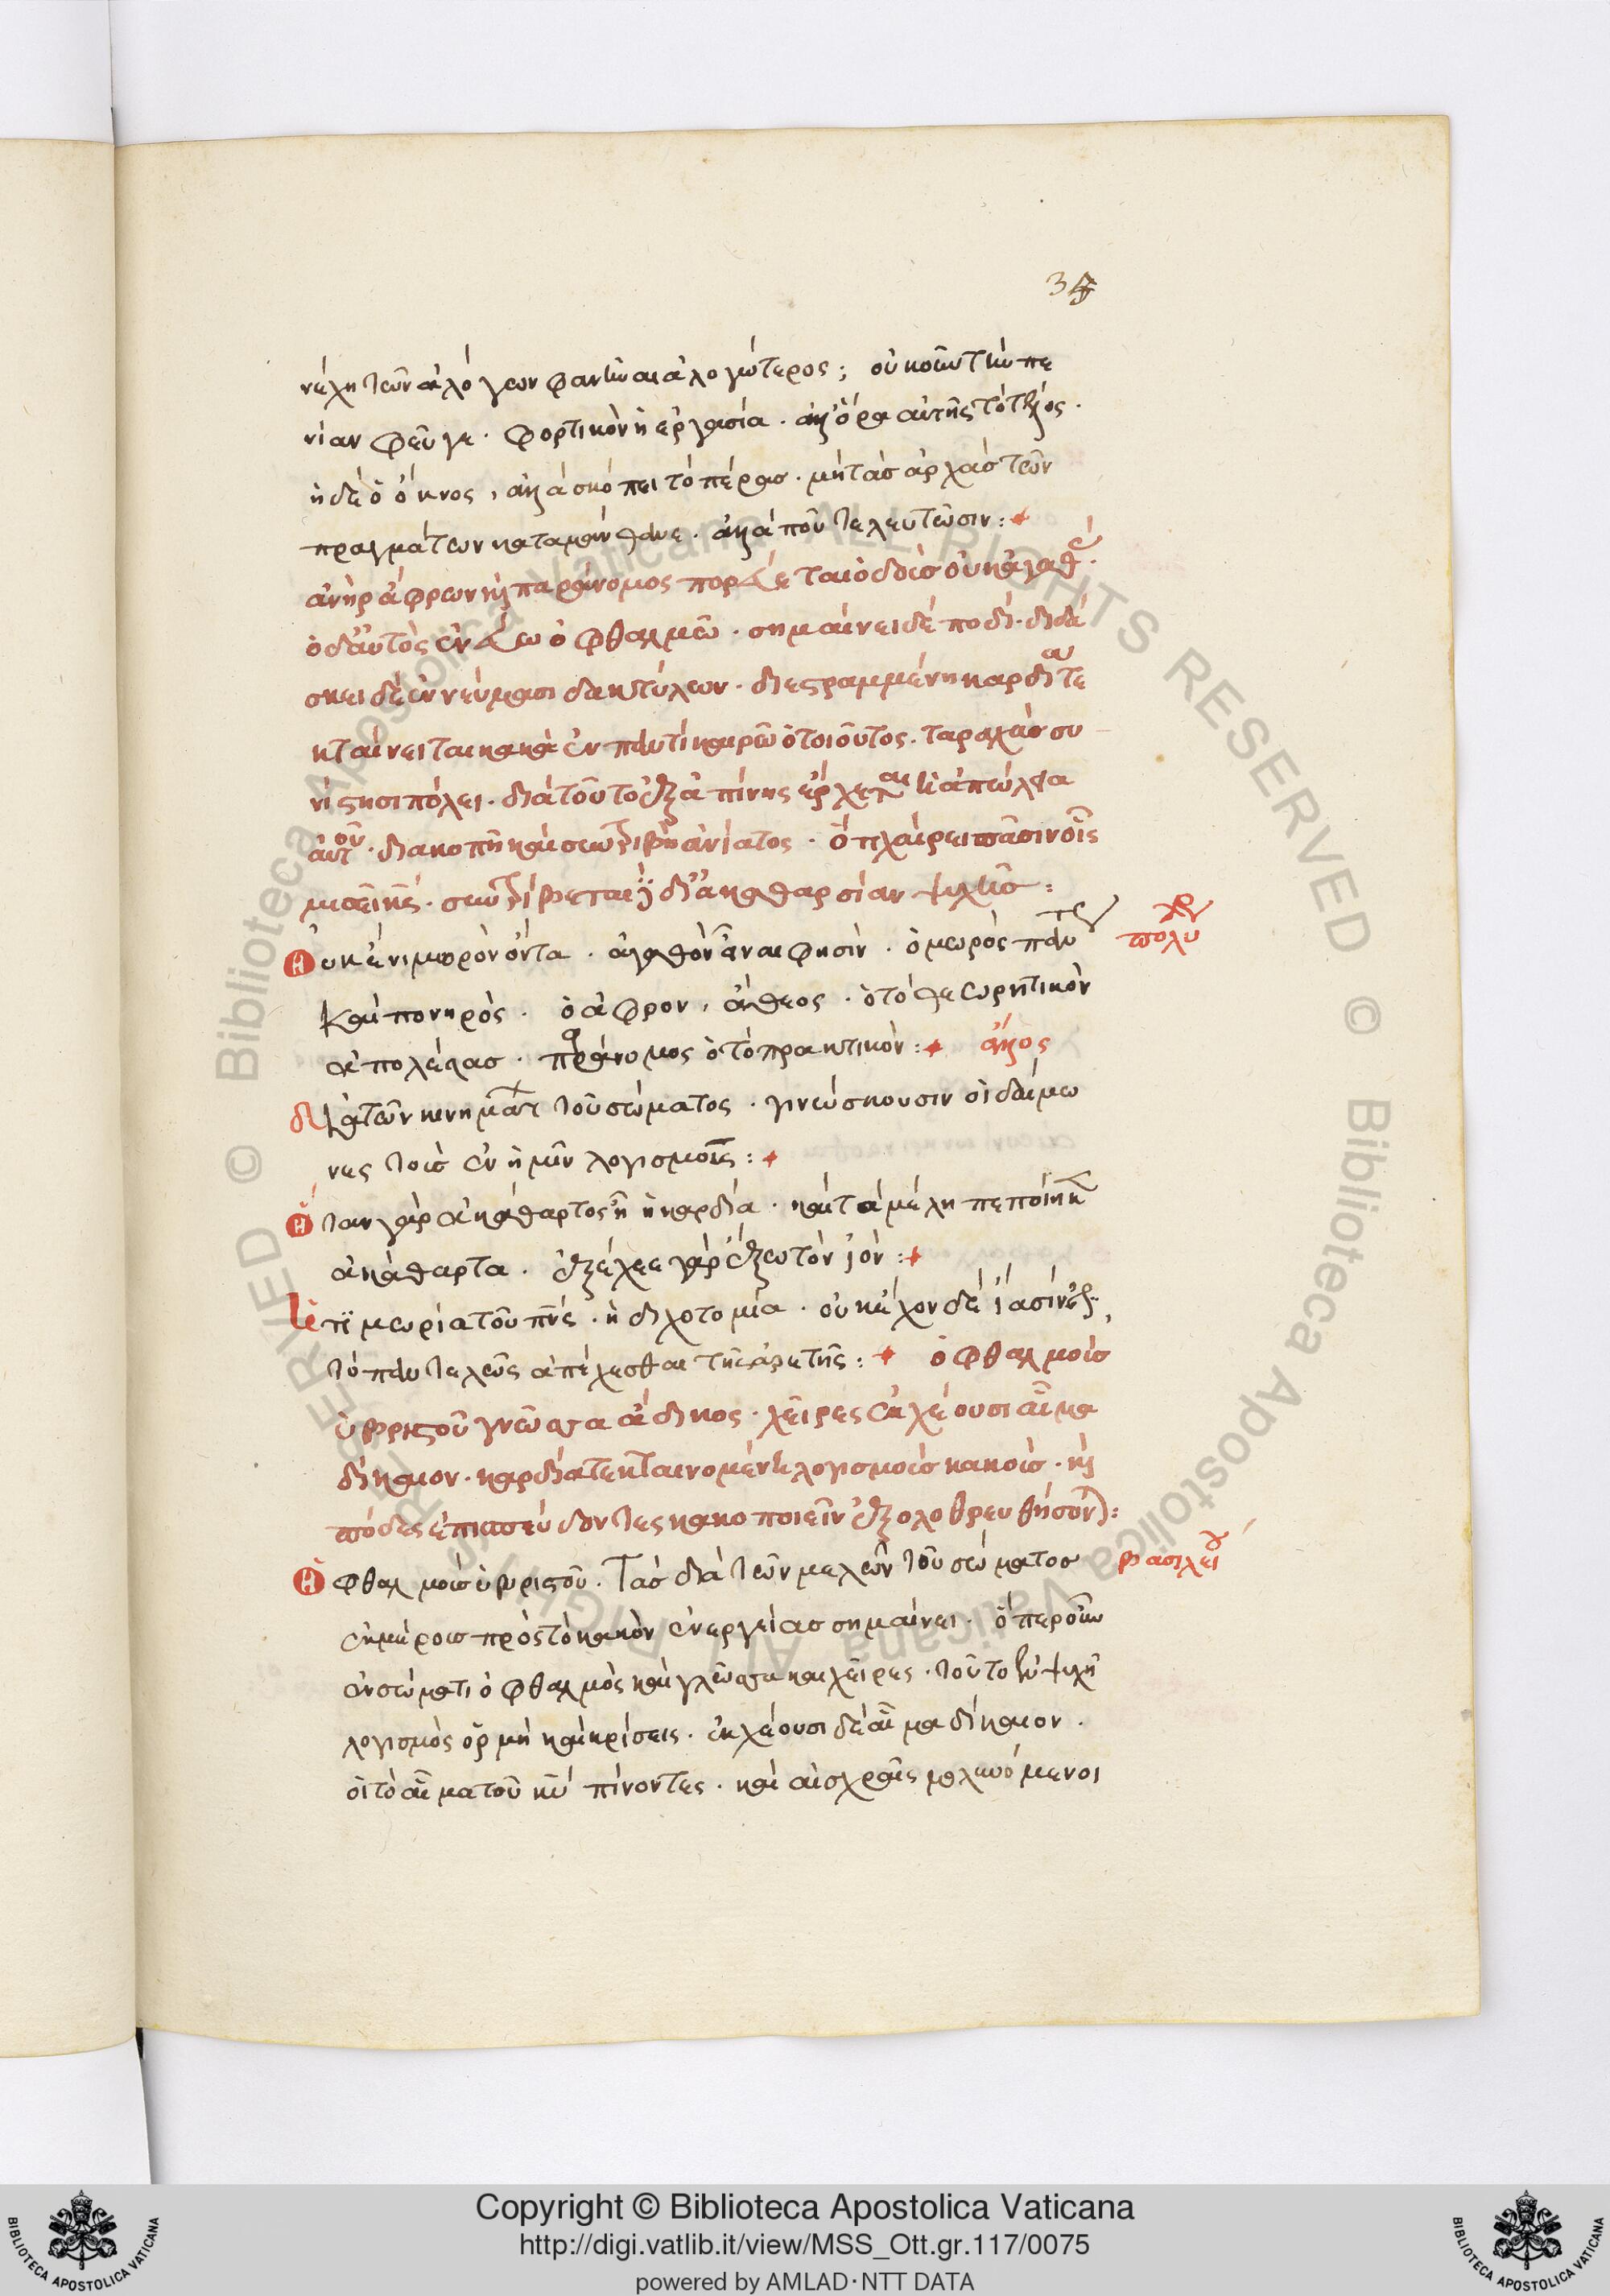 34
νέχη τῶν ἀλόγων φανῆναι ἀλογώτερος; οὐκοῦν τὴν πε
νίαν φεῦγε. φορτικὸν ἡ ἐργασία. ἀλλ' ὅρα αὐτῆς τὸ τέλος.
ἡδὺ ὁ ὄκνος, ἀλλὰ σκόπει τὸ πέρας. μὴ τὰς ἀρχὰς τῶν
πραγμάτων καταμάνθανε. ἀλλὰ ποῦ τελευτῶσιν:
ἀνὴρ ἄφρων καὶ παράνομος πορεύεται ὁδοὺς οὐκ ἀγαθ.
ὁ δ' αὐτὸς ἐννεύω ὀφθαλμῶ. σημαίνει δὲ ποδί. διδά
σκει δὲ ἐν νεύμασι δακτύλων. διεστραμμένη καρδία τε
κταίνεται κακὰ ἐν παντὶ καιρῶ ὁ τοιοῦτος. ταραχὰς συ
νίστησι πόλει. διὰ τοῦτο ἐξαπίνης ἔρχεται ἡ ἀπώλεια
αὐτοῦ. διακοπὴ καὶ συντριβὴ ἀνίατος. ὅτι χαίρει πᾶσιν οἷς
μισεῖ. συντρίβεται δι' ἀκαθαρσίαν ψυχῆς:
οὐκ ἔνι μωρὸν ὄντα. ἀγαθὸν εἶναι φησίν. ὁ μωρὸς πάντως
πολυ
καὶ πονηρός. ὁ ἄφρον, ἄθεος. ὁ τὸ θεωρητικὸν
ἀπολέσας. παράνομος ὁ τὸ πρακτικόν: ἄλλος
διὰ τῶν κινημάτ τοῦ σώματος. γινώσκουσιν οἱ δαίμο
νες τοὺς ἐν ἡμῖν λογισμούς:
ὅταν γὰρ ἀκάθαρτος ἦ ἡ καρδία. καὶ τὰ μέλη πεποίηκ
ἀκάθαρτα. ἐξέχεε γὰρ ἔξω τὸν ἰόν:
ἡ τιμωρία τοῦ πνς. ἡ διχοτομία. οὐκ ἔχον δὲ ἴασιν
τὸ παντελῶς ἀπέχεσθαι τῆς ἀρετῆς: ὀφθαλμοὺς
ὑβριστοῦ γλῶσσα ἄδικος. χεῖρες ἐκχέουσι αἷμα
δίκαιον. καρδία τεκταινομένη λογισμοὺς κακούς. καὶ
πόδες ἐπισπεύδοντες κακοποιεῖν ἐξολοθρευθήσον):
ὀφθαλμοὺς ὑβριστοῦ. Τὰς διὰ τῶν μελῶν τοῦ σώματος βασιλεί
ἐκμέρους πρὸς τὸ κακὸν ἐνεργείας σημαίνει. ὅπερ οὖν
ἐν σώματι ὀφθαλμὸς καὶ γλῶσσα καὶ χεῖρες. τοῦτο ἐν ψυχῆ
λογισμὸς ὁρμὴ καὶ κρίσεις. ἐκχέουσι δὲ αἷμα δίκαιον.
οἱ τὸ αἷμα τοῦ κυ πίνοντες. καὶ αἰσχρᾶς μολυνόμενοι
Copyright © Biblioteca Apostolica Vaticana
http://digi.vatlib.it/view/MSS_Ott.gr.117/0075
powered by AMLAD·NTT DATA